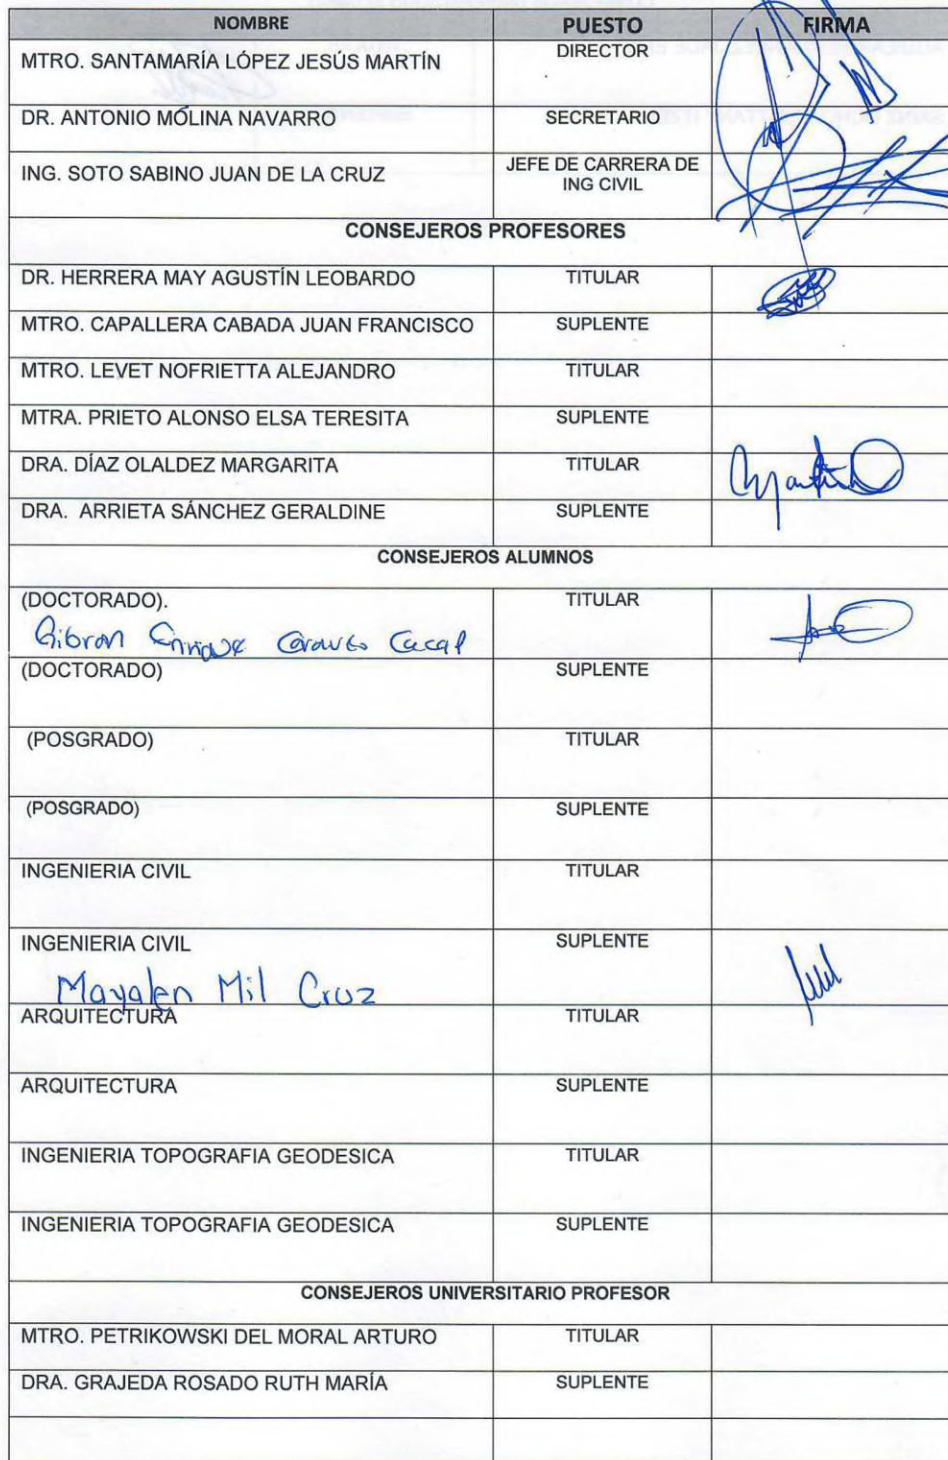 NOMBRE PUESTO FIRMA
MTRO. SANTAMARÍA LÓPEZ JESÚS MARTÍN DIRECTOR
DR. ANTONIO MÓLINA NAVARRO SECRETARIO
ING. SOTO SABINO JUAN DE LA CRUZ JEFE DE CARRERA DE
ING CIVIL
CONSEJEROS PROFESORES
DR. HERRERA MAY AGUSTÍN LEOBARDO TITULAR
MTRO. CAPALLERA CABADA JUAN FRANCISCO SUPLENTE
MTRO. LEVET NOFRIETTA ALEJANDRO TITULAR
MTRA. PRIETO ALONSO ELSA TERESITA SUPLENTE
DRA. DÍAZ OLALDEZ MARGARITA TITULAR
DRA. ARRIETA SÁNCHEZ GERALDINE SUPLENTE
CONSEJEROS ALUMNOS
(DOCTORADO). TITULAR
Gibran Enrique
(DOCTORADO) SUPLENTE
(POSGRADO) TITULAR
(POSGRADO) SUPLENTE
INGENIERIA CIVIL TITULAR
INGENIERIA CIVIL SUPLENTE
Mayalen Mil Cruz
ARQUITECTURA TITULAR
ARQUITECTURA SUPLENTE
INGENIERIA TOPOGRAFIA GEODESICA TITULAR
INGENIERIA TOPOGRAFIA GEODESICA SUPLENTE
CONSEJEROS UNIVERSITARIO PROFESOR
MTRO. PETRIKOWSKI DEL MORAL ARTURO TITULAR
DRA. GRAJEDA ROSADO RUTH MARÍA SUPLENTE